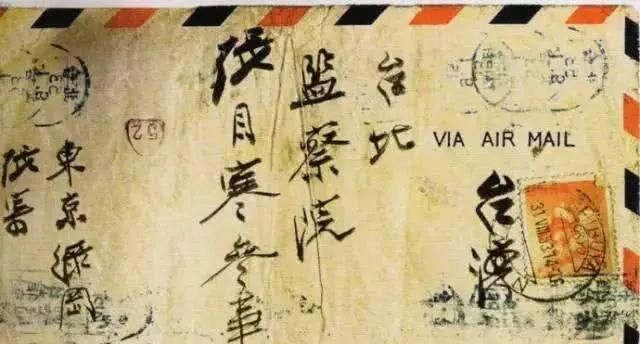 台灣
VIA AIR MAIL
台北
監察院
張目寒參事
52
東京
張寄